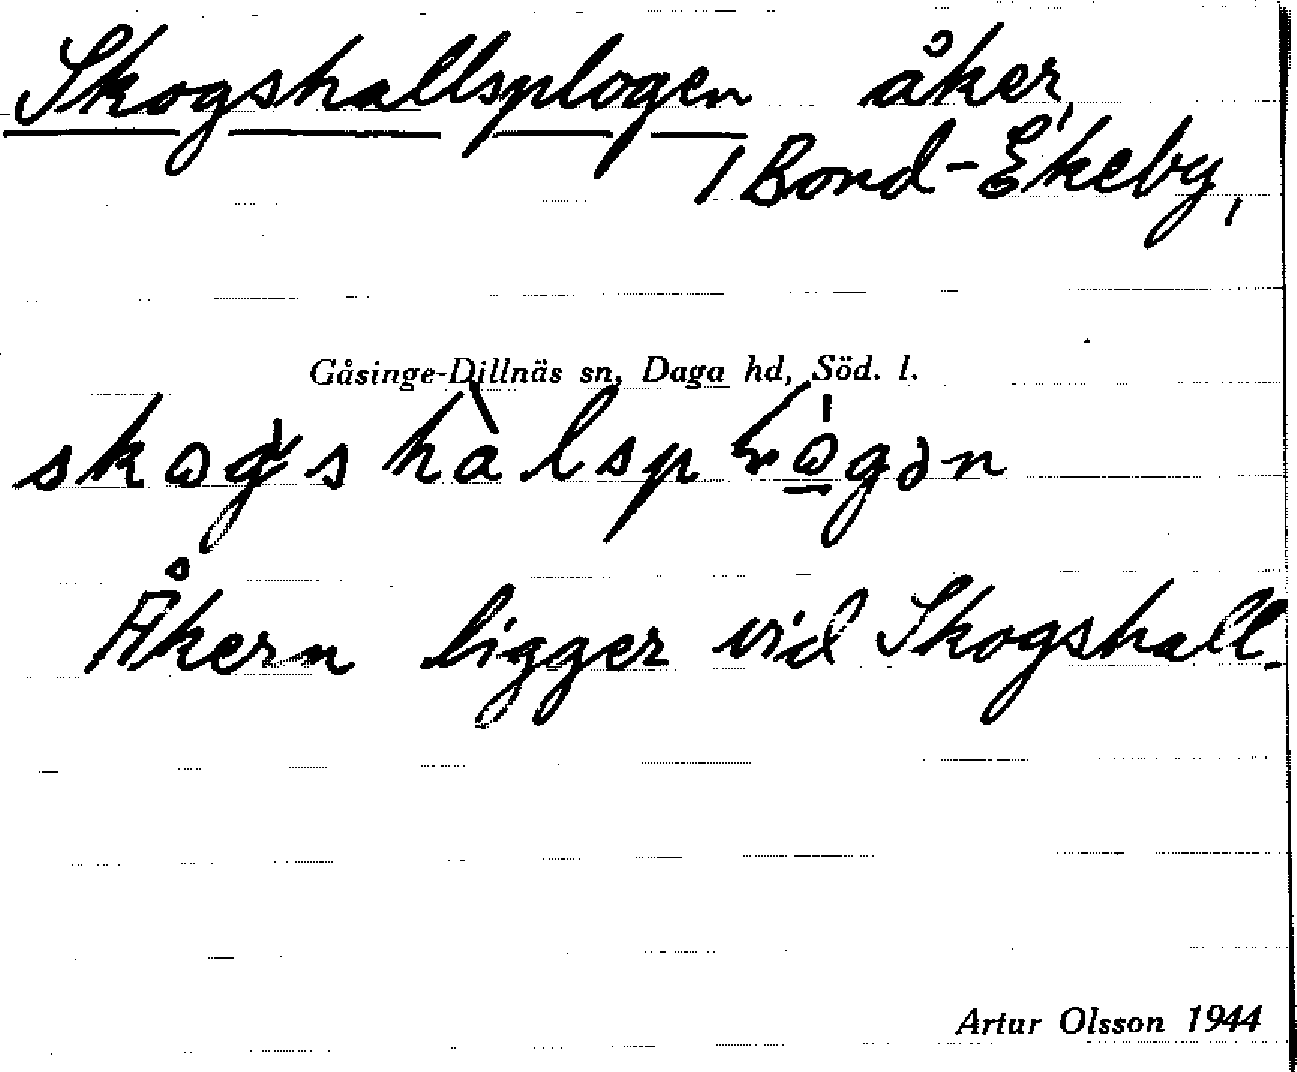 Skogshallsplogen åker,
/ Bond-Ekeby,
Gåsinge-Dillnäs sn, Daga hd, Söd. l.
Åkern ligger vid Skogshall.
Artur Olsson 1944